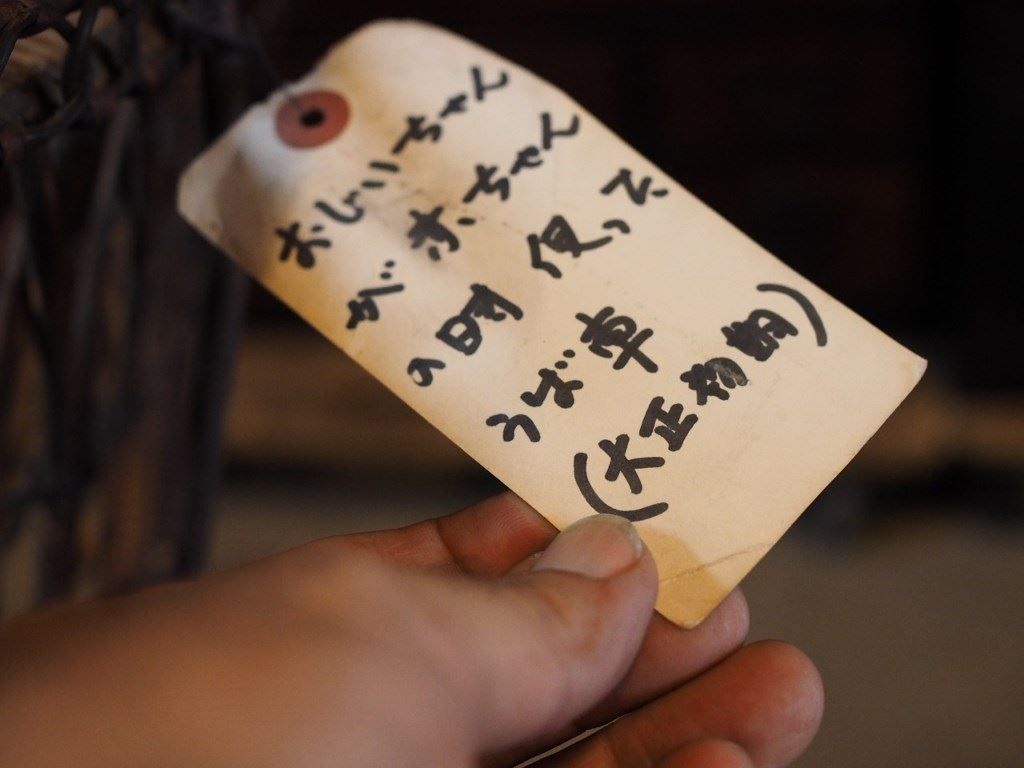 おじいちゃん
が赤ちゃん
の時使った
うば車
(大正初期)